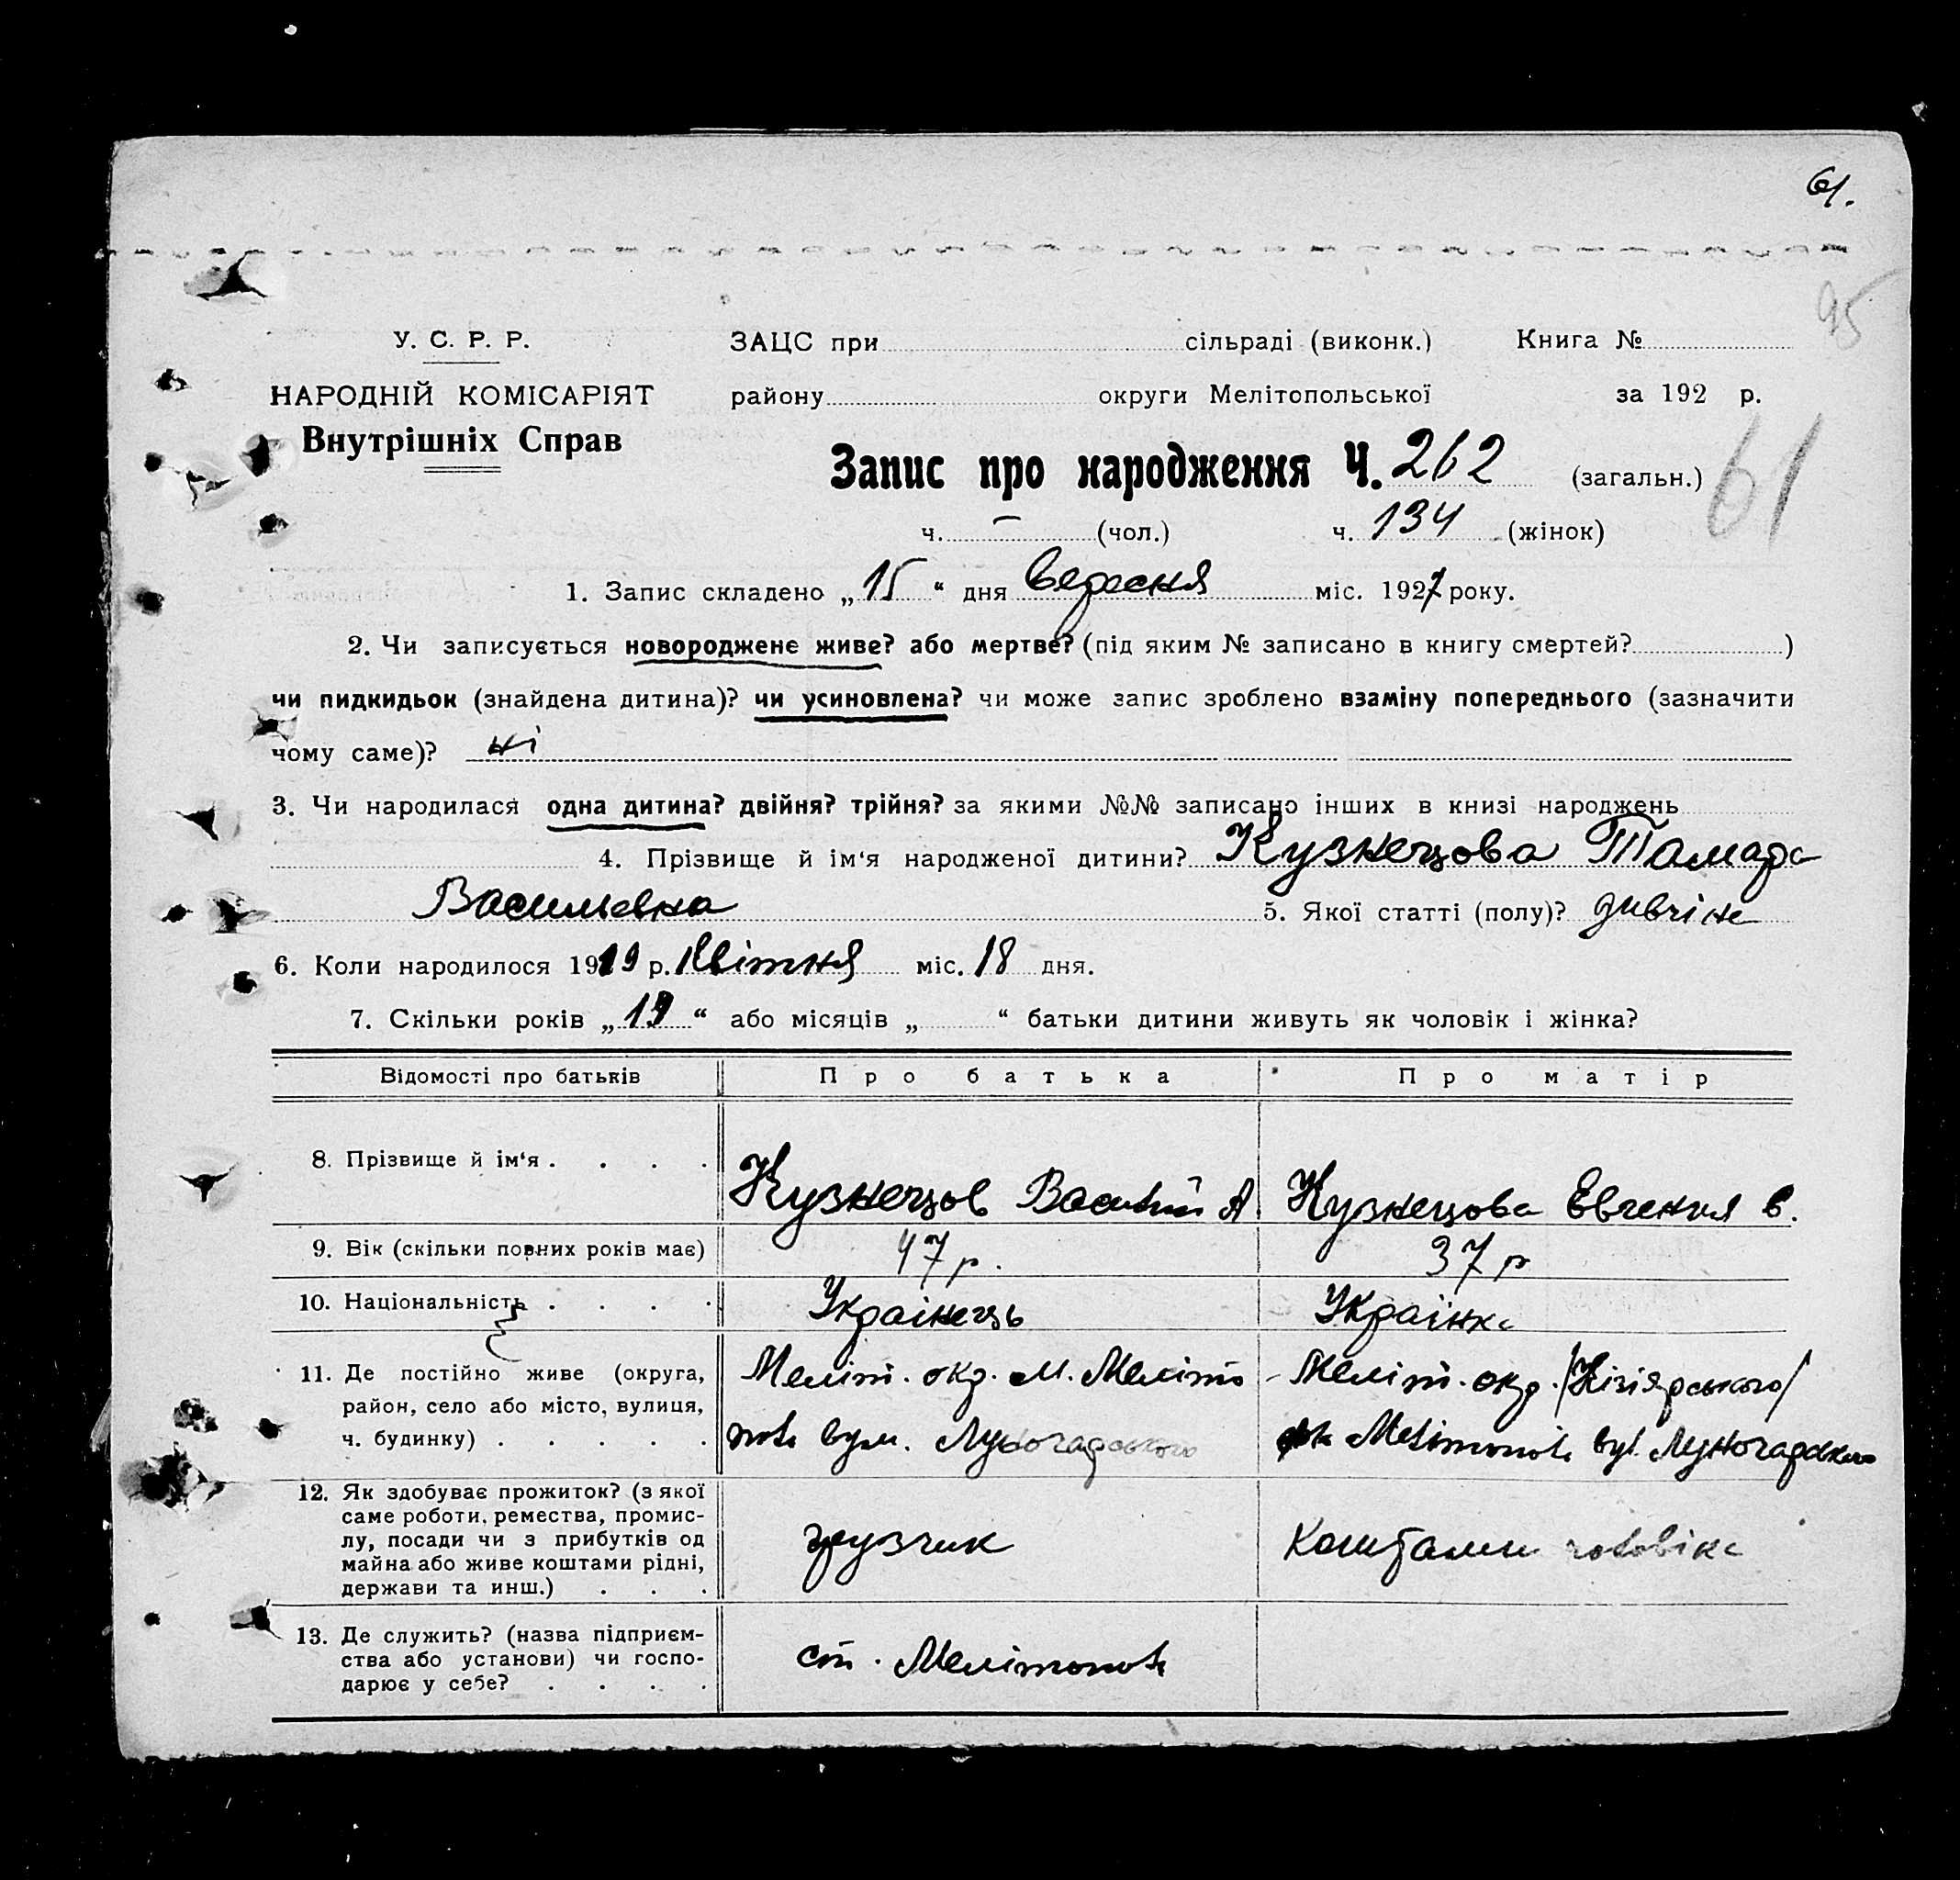 61.
95
У. С. Р. Р.
НАРОДНІЙ КОМІСАРІЯТ
Внутрішніх Справ
ЗАЦС при сільраді (виконк.) Книга №
району округи Мелітопольської за 192 р.
Запис про народження Ч. 262 (загальн.)
61
ч. — (чол.) ч. 134 (жінок)
1. Запис складено „15“ дня Вересня міс. 1927 року.
2. Чи записується новороджене живе? або мертве? (під яким № записано в книгу смертей? )
чи пидкидьок (знайдена дитина)? чи усиновлена? чи може запис зроблено взаміну попереднього (зазначити
чому саме)? ні
3. Чи народилася одна дитина? двійня? трійня? за якими №№ записано інших в книзі народжень
4. Прізвище й ім‘я народженої дитини? Кузнецова Тамара
Васильевна 5. Якої статті (полу)? дивчіна
6. Коли народилося 1919 р. Квітня міс. 18 дня.
7. Скільки років „19“ або місяців „ “ батьки дитини живуть як чоловік і жінка?
Відомості про батьків Про батька Про матір
8. Прізвище й ім‘я . . . . Кузнецов Василий А Кузнецова Евгения В.
9. Вік (скільки повних років має) 47 р. 37 р
10. Національність . . . . Украінець Украінка
11. Де постійно живе (округа, Меліт. окр. М. Меліто Меліт. окр. /Кізіярського/
район, село або місто, вулиця,
ч. будинку) . . . . . поль вул. Луночарського Мелітополь вул. Луночарського
12. Як здобуває прожиток? (з якої
саме роботи, ремества, промис-
лу, посади чи з прибутків од грузчик Коштами чоловіка
майна або живе коштами рідні,
держави та инш.) . . .
13. Де служить? (назва підприєм-
ства або установи) чи госпо- ст. Мелітополь
дарює у себе? . . . .